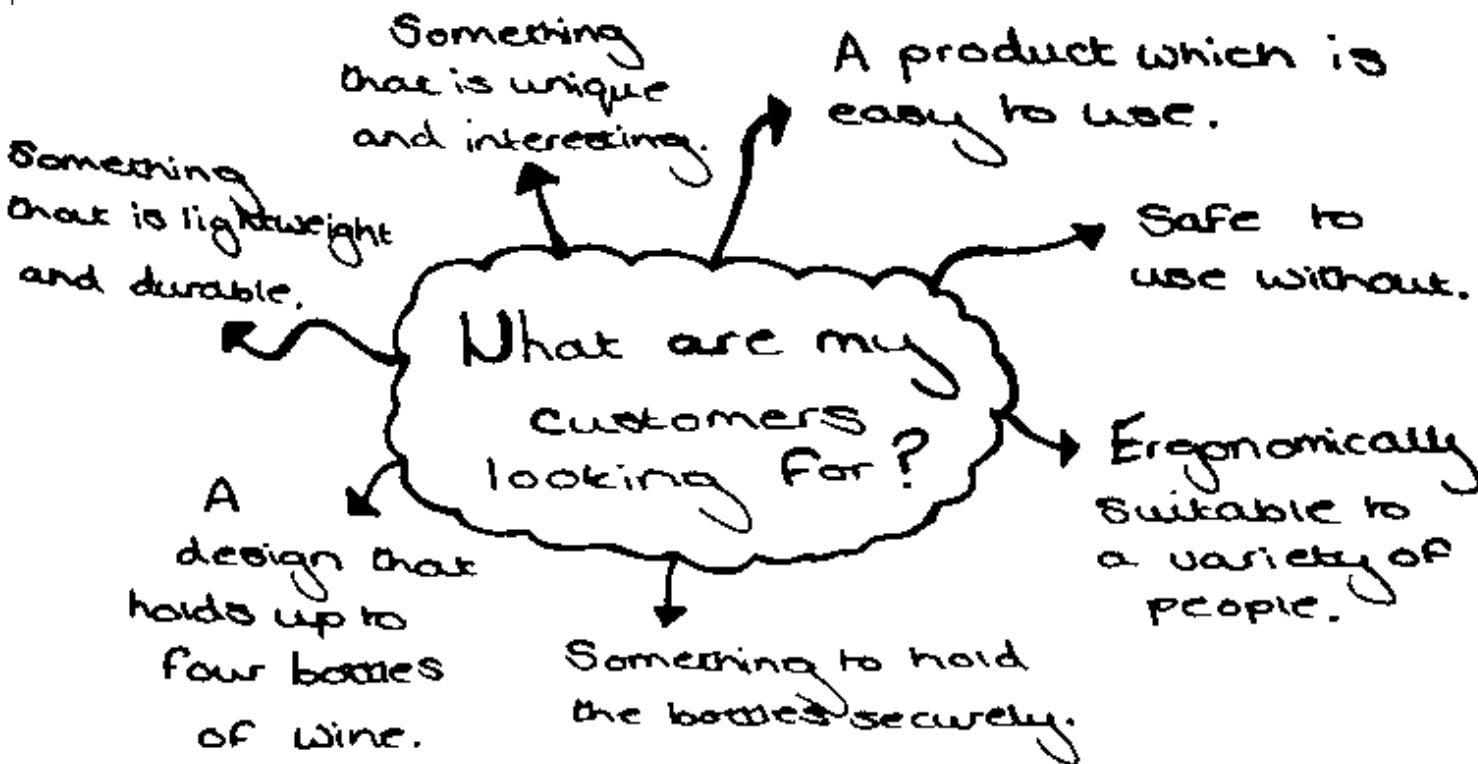 What are my
customers
looking for?
Something
that is unique
and interesting.
A product which is
easy to use.
Safe to
use without.
Ergonomically
suitable to
a variety of
people.
Something to hold
the bottles securely.
A
design that
holds up to
four bottles
of wine.
Something
that is lightweight
and durable.